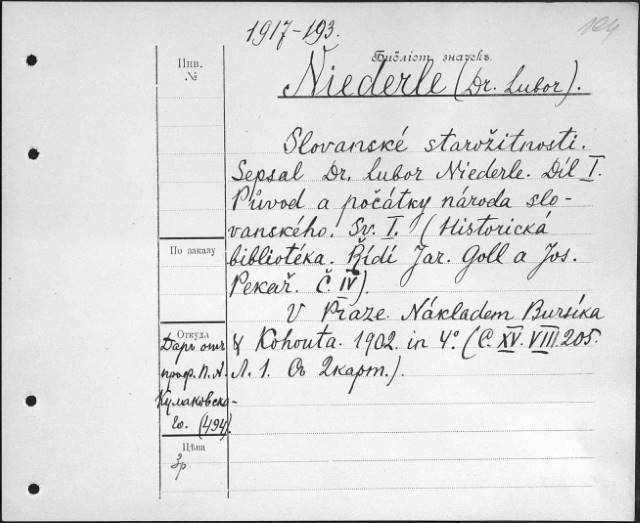 1917-193.
194
Библіот. значекъ.
Инв.
№
Niederle (Dr. Lubor).
Slovanské starožitnosti.
Sepsal Dr. Lubor Niederle. Díl I.
Původ a počátky národa slo-
vanského. Sv. I. (Historická
По заказу
bibliotéka. Řídí Jar. Goll a Jos.
Pekař. Č. IV).
V Praze. Nákladem Bursíka
Откуда
& Kohouta. 1902. in 4º. (C. XV. VIII. 205.
Л. 1. Съ 2 карт.).
Даръ отъ
проф. П. А.
Кулаковска-
го. (494).
Цѣна
3р.